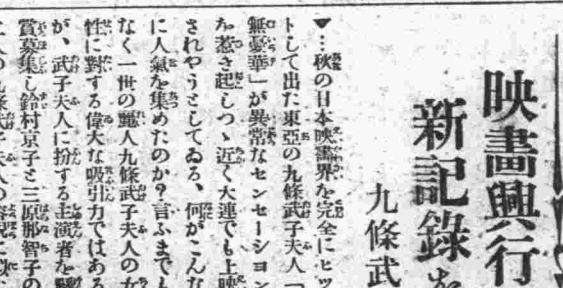 映畫興行
新記錄を
九條武
▼…秋の日本映畫界を完全にヒッ
トして出た東亞の九條武子夫人「
無憂華」が異常なセンセーション
を惹き起しつゝ近く大連でも上映
されやうとしてゐる、何がこんな
に人氣を集めたのか？言ふまでも
なく一世の麗人九條武子夫人の女
性に對する偉大な吸引力ではある
が、武子夫人に扮する主演者を懸
賞募集し鈴村京子と三原那智子の
二人の九條武子夫人の容貌に